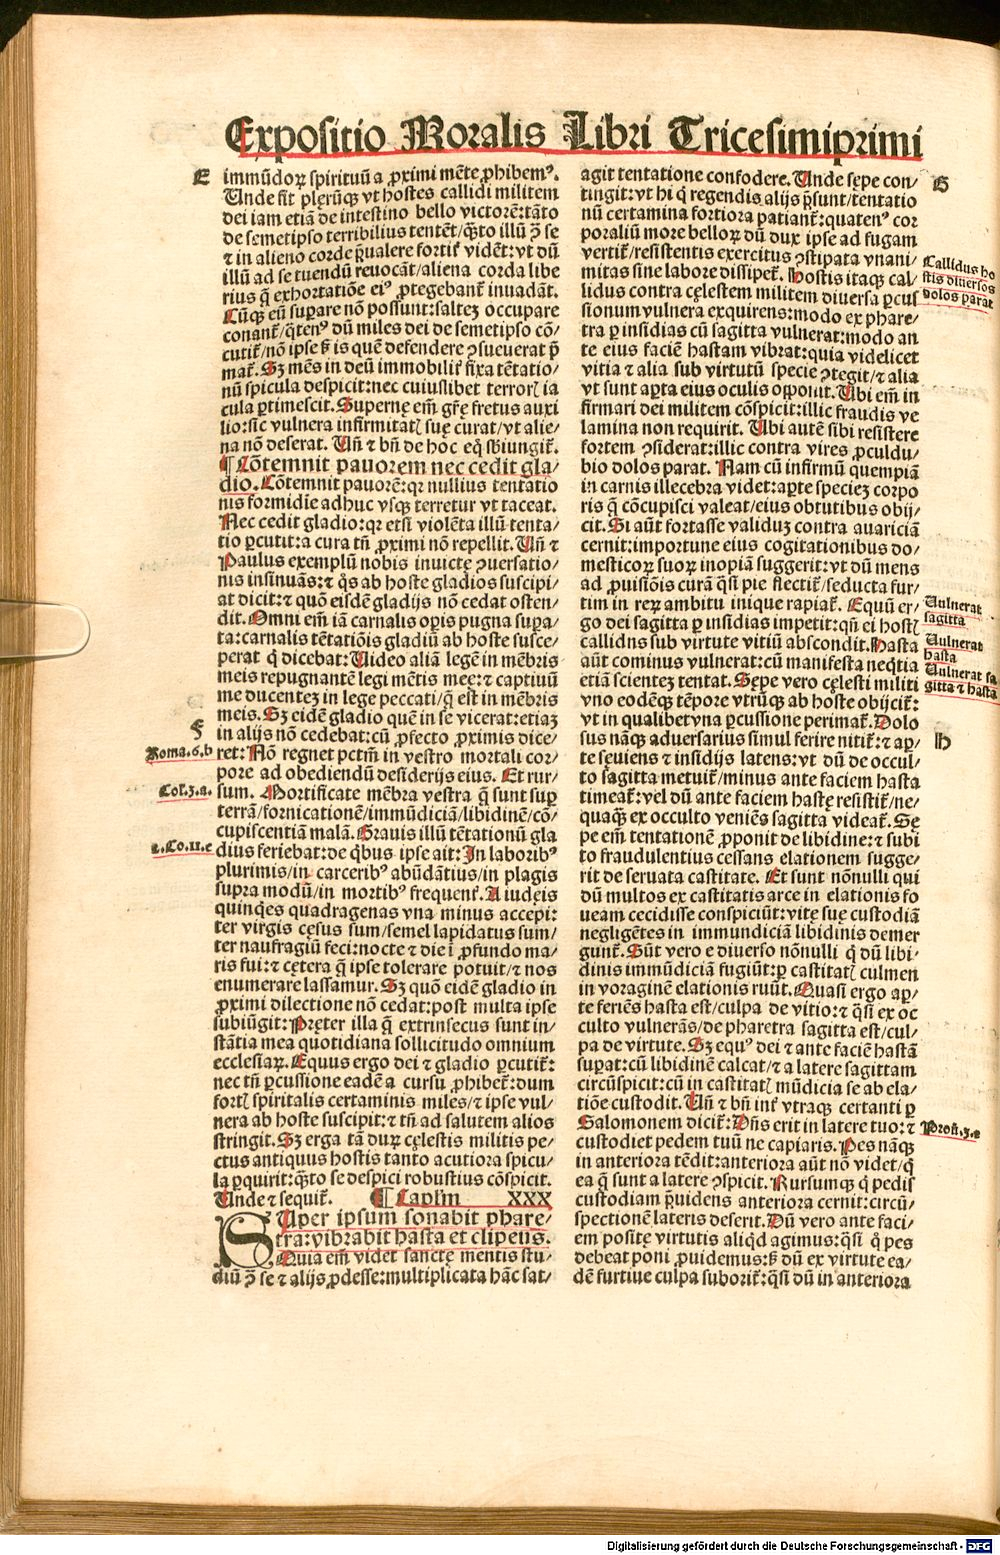 Expositio Moralis Libri Tricesimiprimi
E
immūdoꝝ spirituū a ꝓximi mēte ꝓhibemꝰ.
Unde fit plęrūꝗ vt hostes callidi militem
dei iam etiā de intestino bello victorē: tāto
de semetipso terribilius tentēt/ quāto illū ꝓ se
⁊ in alieno corde p̄ualere fortiť vidēt: vt dū
illū ad se tuendū reuocāt/ aliena corda libe
rius q̄ exhortatiōe eiꝰ ꝓtegebant̄ inuadāt.
Cūꝗ eū suꝑare nō possunt: saltez occupare
conant̄/ q̄tenꝰ dū miles dei de semetipso cō/
cutit̄/ nō ipse sꝫ is quē defendere ꝯsueuerat p̄
mat̄. Sꝫ mēs in deū immobiliť fixa tētatio/
nū spicula despicit: nec cuiuslibet terroꝝ ia
cula ꝑtimescit. Supernę em̄ gr̄ę fretus auxi
lio: sic vulnera infirmitatꝭ suę curat/ vt alie/
na nō deserat. Uñ ⁊ bñ de hoc eq̄ sb̄iungit̄.
¶ Cōtemnit pauorem nec cedit gla/
dio. Cōtemnit pauorē: qꝛ nullius tentatio
nis formidie adhuc vsqꝫ terretur vt taceat.
Nec cedit gladio: qꝛ etsi violēta illū tenta/
tio ꝑcutit: a cura tñ ꝓximi nō repellit. Uñ ⁊
Paulus exemplū nobis inuictę ꝯuersatio/
nis insinuās: ⁊ q̄s ab hoste gladios suscipi/
at dicit: ⁊ quō eisdē gladijs nō cedat osten/
dit. Omni em̄ iā carnalis opis pugna suꝑa/
ta: carnalis tētatiōis gladiū ab hoste susce/
perat qͥ dicebat: Uideo aliā legē in mēbris
meis repugnantē legi mētis meę: ⁊ captiuū
me ducentez in lege peccati/ q̄ est in mēbris
meis. Sꝫ eidē gladio quē in se vicerat: etiaz
F
in alijs nō cedebat: cū ꝓfecto ꝓximis dice/
Roma.6.b
ret: Nō regnet pctm̄ in vestro mortali cor/
pore ad obediendū desiderijs eius. Et rur/
Col.3.a.
sum. Mortificate mēbra vestra q̄ sunt suꝑ
terrā/ fornicationē/ immūdiciā/ libidinē/ cō/
cupiscentiā malā. Grauis illū tētationū gla
2.Co.11.e
dius feriebat: de qͥbus ipse ait: In laboribꝰ
plurimis/ in carceribꝰ abūdātius/ in plagis
supra modū/ in mortibꝰ frequent̄. A iudęis
quinqͥes quadragenas vna minus accepi:
ter virgis cęsus sum/ semel lapidatus sum/
ter naufragiū feci: nocte ⁊ die ī ꝓfundo ma/
ris fui: ⁊ cętera q̄ ipse tolerare potuit/ ⁊ nos
enumerare lassamur. Sꝫ quō eidē gladio in
ꝓximi dilectione nō cedat: post multa ipse
subiūgit: Pręter illa q̄ extrinsecus sunt in/
stātia mea quotidiana sollicitudo omnium
ecclesiaꝝ. Equus ergo dei ⁊ gladio ꝑcutit̄:
nec tñ ꝑcussione eadē a cursu ꝓhibet̄: dum
fortꝭ spiritalis certaminis miles/ ⁊ ipse vul/
nera ab hoste suscipit: ⁊ tñ ad salutem alios
stringit. Sꝫ erga tā duꝝ cęlestis militis pe/
ctus antiquus hostis tanto acutiora spicu/
la ꝑquirit: quāto se despici robustius cōspicit.
Unde ⁊ sequit̄. ¶ Caplm XXX
SUper ipsum sonabit phare/
tra: vibrabit hasta et clipeus.
Quia em̄ videt sanctę mentis stu/
diū ꝓ se ⁊ alijs ꝓdesse: multiplicata hāc sat/
agit tentatione confodere. Unde sępe con/
G
tingit: vt hi qͥ regendis alijs p̄sunt/ tentatio
nū certamina fortiora patiant̄: quatenꝰ cor
poraliū more belloꝝ dū dux ipse ad fugam
vertit̄/ resistentis exercitus ꝯstipata vnani/
mitas sine labore dissipet̄. Hostis itaqꝫ cal/
Callidus ho
stis diuersos
dolos parat
lidus contra cęlestem militem diuersa ꝑcus
sionum vulnera exquirens: modo ex phare/
tra ꝑ insidias cū sagitta vulnerat: modo an
te eius faciē hastam vibrat: quia videlicet
vitia ⁊ alia sub virtutū specie ꝯtegit/ ⁊ alia
vt sunt aꝑta eius oculis opponit. Ubi em̄ in
firmari dei militem cōspicit: illic fraudis ve
lamina non requirit. Ubi autē sibi resistere
fortem ꝯsiderat: illic contra vires ꝓculdu/
bio dolos parat. Nam cū infirmū quempiā
in carnis illecebra videt: aꝑte speciez corpo
ris q̄ cōcupisci valeat/ eius obtutibus obij/
cit. Si aūt fortasse validuz contra auariciā
cernit: importune eius cogitationibus do/
mesticoꝝ suoꝝ inopiā suggerit: vt dū mens
ad ꝓuisiōis curā q̄si pie flectit̄/ seducta fur/
tim in reꝝ ambitu inique rapiat̄. Equū er/
Uulnerat
sagitta
go dei sagitta ꝑ insidias impetit: qñ ei hostꝭ
callidus sub virtute vitiū abscondit. Hasta
Uulnerat
hasta
aūt cominus vulnerat: cū manifesta neq̄tia
etiā scientez tentat. Sępe vero cęlesti militi
Uulnerat sa
gitta ⁊ hasta
vno eodēqꝫ tēpore vtrūqꝫ ab hoste obijcit̄:
vt in qualibet vna ꝑcussione perimat̄. Dolo
sus nāqꝫ aduersarius simul ferire nitit̄: ⁊ aꝑ/
H
te sęuiens ⁊ insidijs latens: vt dū de occul/
to sagitta metuit̄/ minus ante faciem hasta
timeat̄: vel dū ante faciem hastę resistit̄/ ne/
quaqꝫ ex occulto veniēs sagitta videat̄. Sę
pe em̄ tentationē ꝓponit de libidine: ⁊ subi
to fraudulentius cessans elationem sugge/
rit de seruata castitate. Et sunt nōnulli qui
dū multos ex castitatis arce in elationis fo
ueam cecidisse conspiciūt: vitę suę custodiā
negligētes in immundiciā libidinis demer
gunt̄. Sūt vero e diuerso nōnulli qͥ dū libi/
dinis immūdiciā fugiūt: ꝑ castitatꝭ culmen
in voraginē elationis ruūt. Quasi ergo aꝑ/
te feriēs hasta est/ culpa de vitio: ⁊ q̄si ex oc
culto vulnerās/ de pharetra sagitta est/ cul/
pa de virtute. Sꝫ equꝰ dei ⁊ ante faciē hastā
suꝑat: cū libidinē calcat/ ⁊ a latere sagittam
circūspicit: cū in castitatꝭ mūdicia se ab ela/
tiōe custodit. Uñ ⁊ bñ int̄ vtraqꝫ certanti ꝑ
Salomonem dicit̄: Dñs erit in latere tuo: ⁊
Prou.3.e
custodiet pedem tuū ne capiaris. Pes nāqꝫ
in anteriora tēdit: anteriora aūt nō videt/ qͥ
ea q̄ sunt a latere ꝯspicit. Rursumqꝫ qͥ pedis
custodiam p̄uidens anteriora cernit: circū/
spectionē lateris deserit. Dū vero ante faci/
em positę virtutis aliqͥd agimus: q̄si qͦ pes
debeat poni ꝓuidemus: sꝫ dū ex virtute ea/
dē furtiue culpa suborit̄: q̄si dū in anteriora
Digitalisierung gefördert durch die Deutsche Forschungsgemeinschaft - DFG